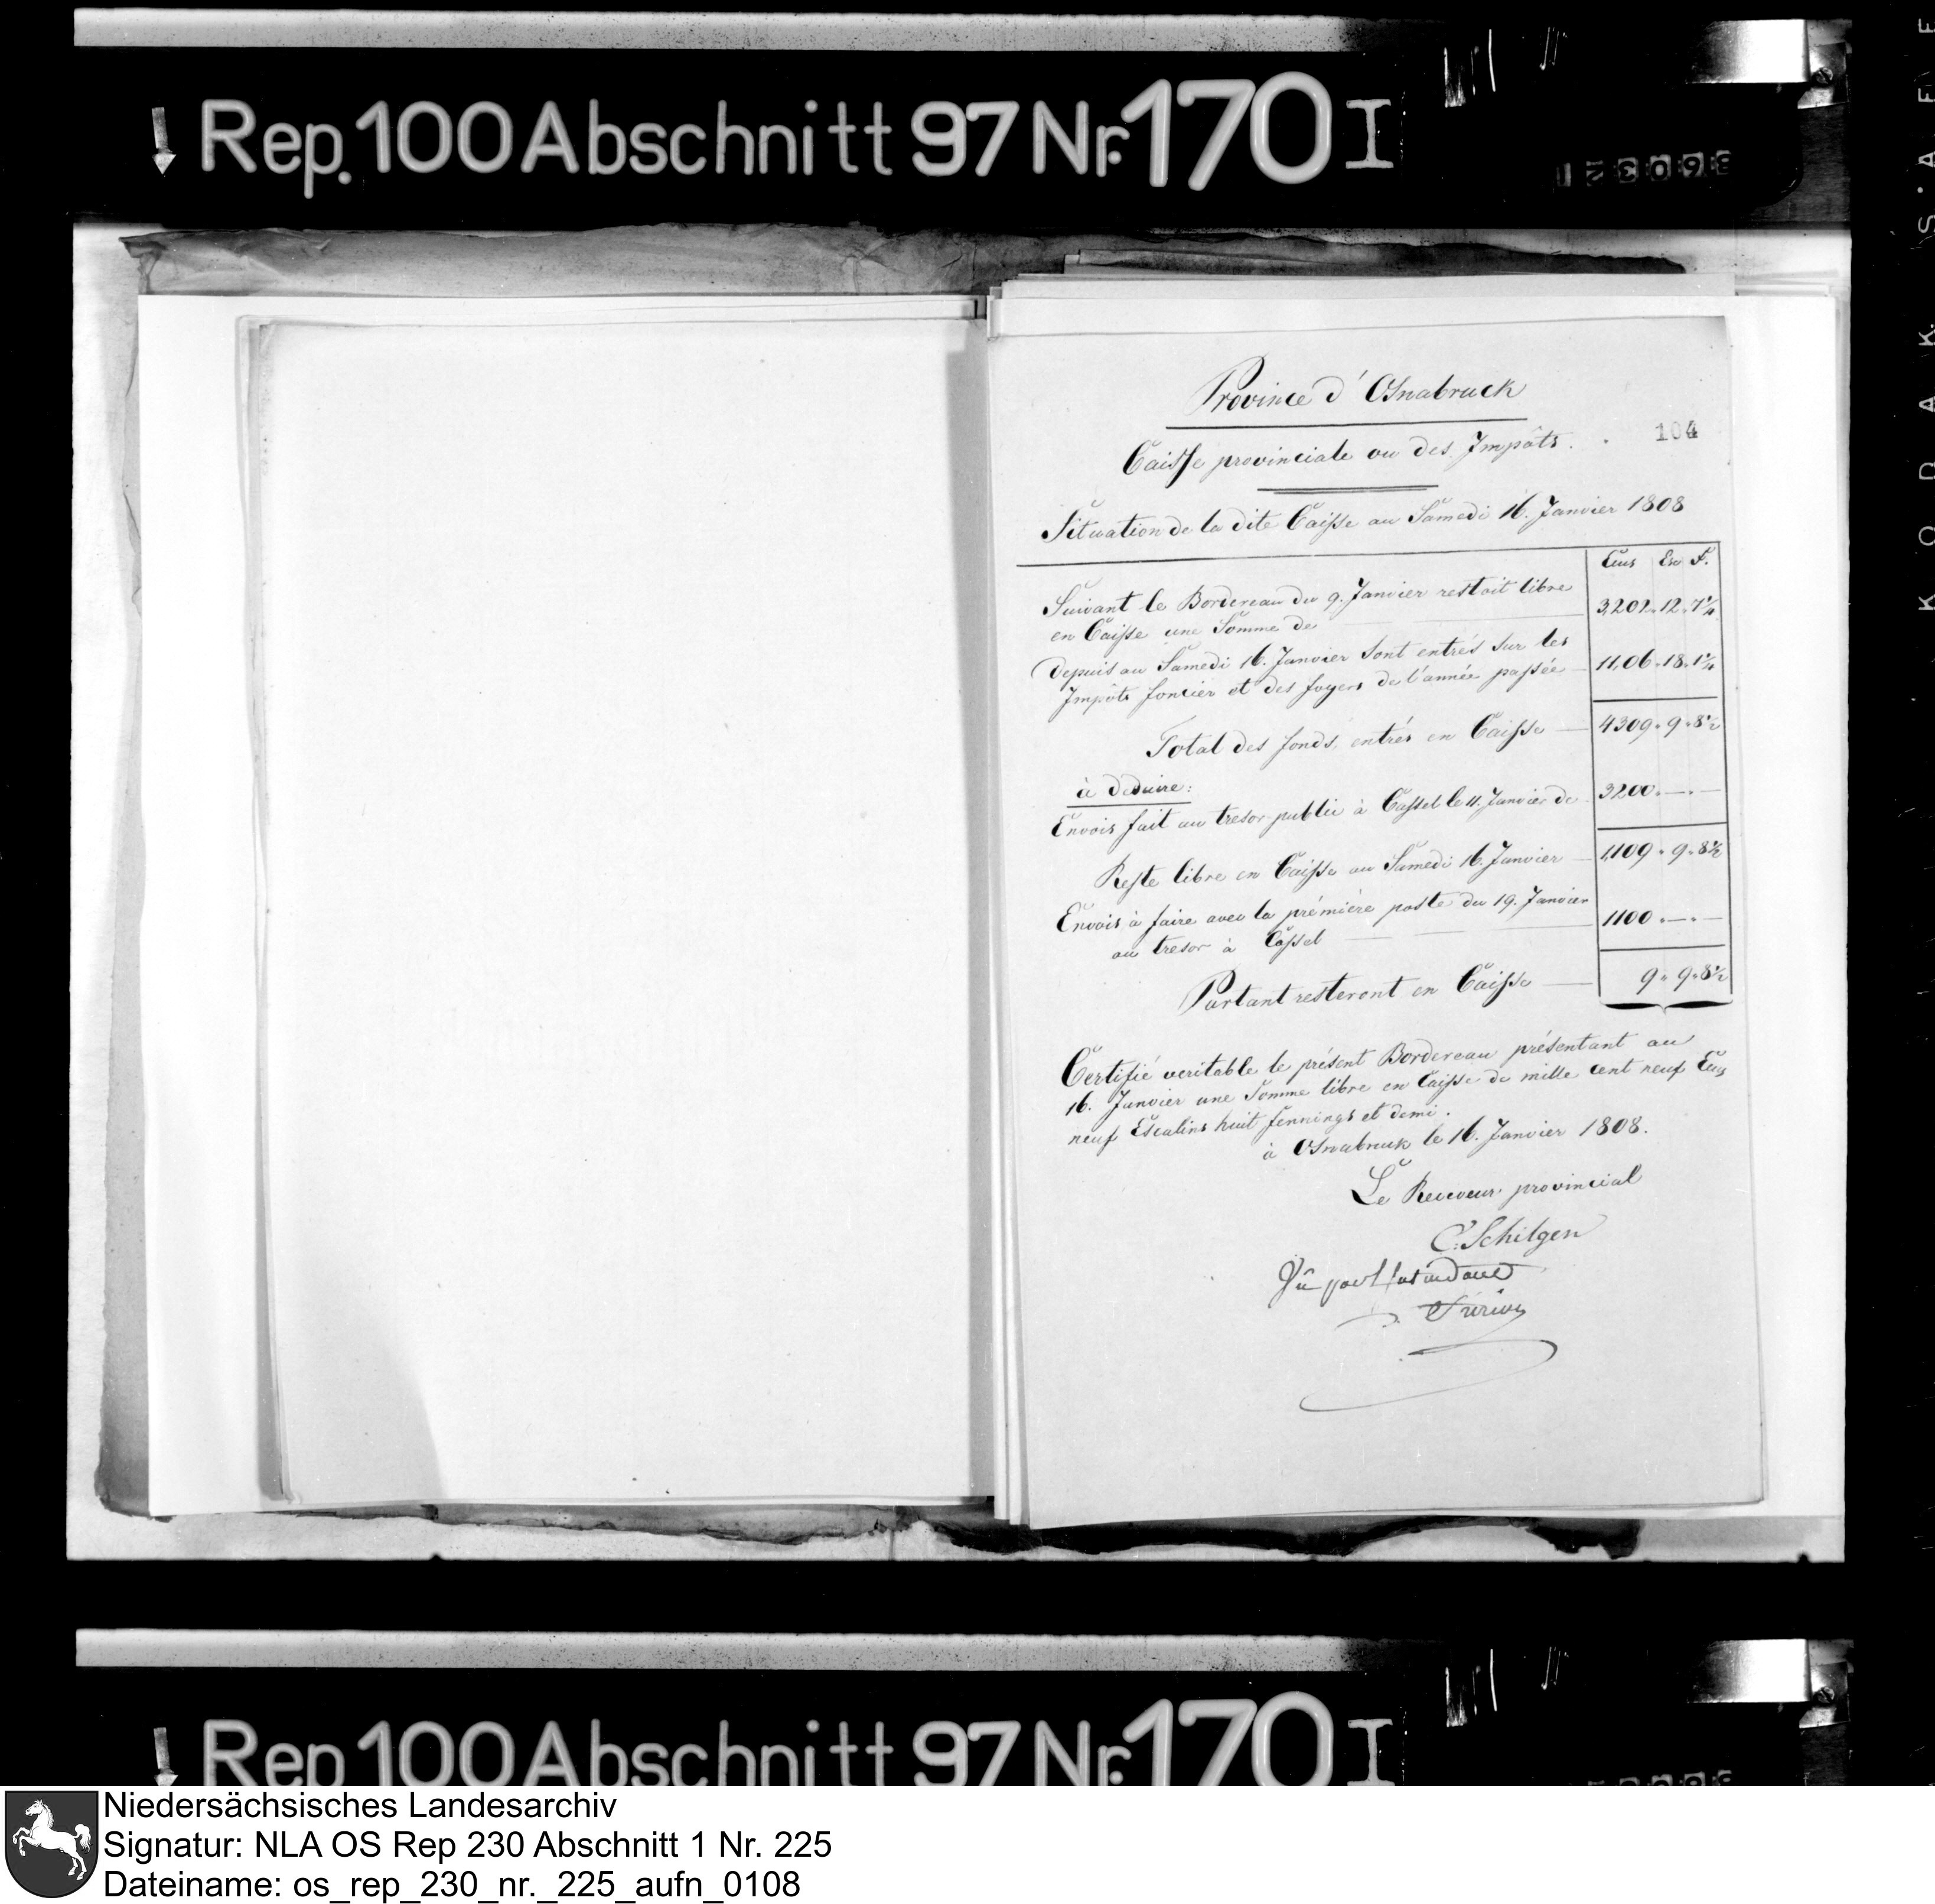 Rep. 100 Abschnitt 97 Nr. 170 I
Province d'Osnabruck
104
Caisse provinciale ou des Impôts.
Situation de la dite Caisse au Samedi 16. Janvier 1808
Ecus Esc F.
Suivant le Bordereau du 9. Janvier restoit libre
en Caisse une Somme de 3,202 " 12 " 7 1/4
Depuis au Samedi 16. Janvier sont entrés sur les
Impôts foncier et des foyers de l'année passée 11,06 " 18 " 1 1/4
Total des fonds entrés en Caisse 4309 " 9 " 8 1/2
à déduire:
Envois fait au tresor public à Cassel le 11. Janvier de 3200 " — " —
Reste libre en Caisse au Samedi 16. Janvier 1,109 " 9 " 8 1/2
Envois à faire avec la prémière poste du 19. Janvier
au tresor à Cassel 1100 " — " —
Partant resteront en Caisse 9 " 9 " 8 1/2
Certifié veritable le présent Bordereau présentant au
16. Janvier une Somme libre en Caisse de mille cent neuf Ecus
neuf Escalins huit fennings et demi.
à Osnabruck le 16. Janvier 1808.
Le Receveur provincial
C. Schilgen
Vû par l'Intendant
Rep 100 Abschnitt 97 Nr. 170 I
KODAK SAFE
Niedersächsisches Landesarchiv
Signatur: NLA OS Rep 230 Abschnitt 1 Nr. 225
Dateiname: os_rep_230_nr._225_aufn_0108